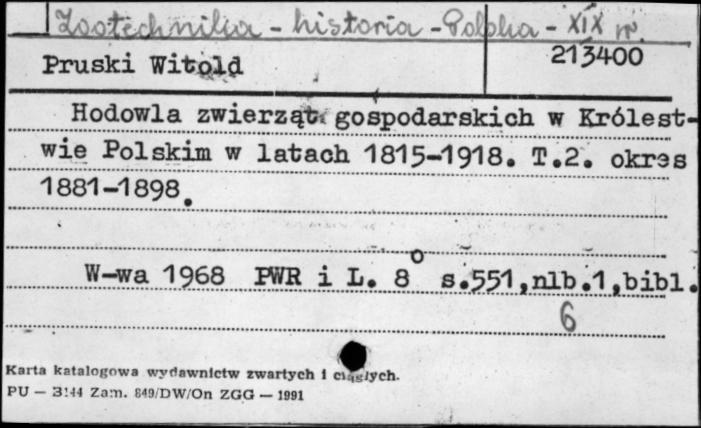 Zootechnika - historia - Polska - XIX w.
Pruski Witold
213400
Hodowla zwierząt gospodarskich w Królest-
wie Polskim w latach 1815-1918. T.2. okres
1881-1898.
W-wa 1968 PWR i L. 8° s.551,nlb.1,bibl.
6
Karta katalogowa wydawnictw zwartych i ciągłych.
PU — 3144 Zam. 849/DW/On ZGG — 1991